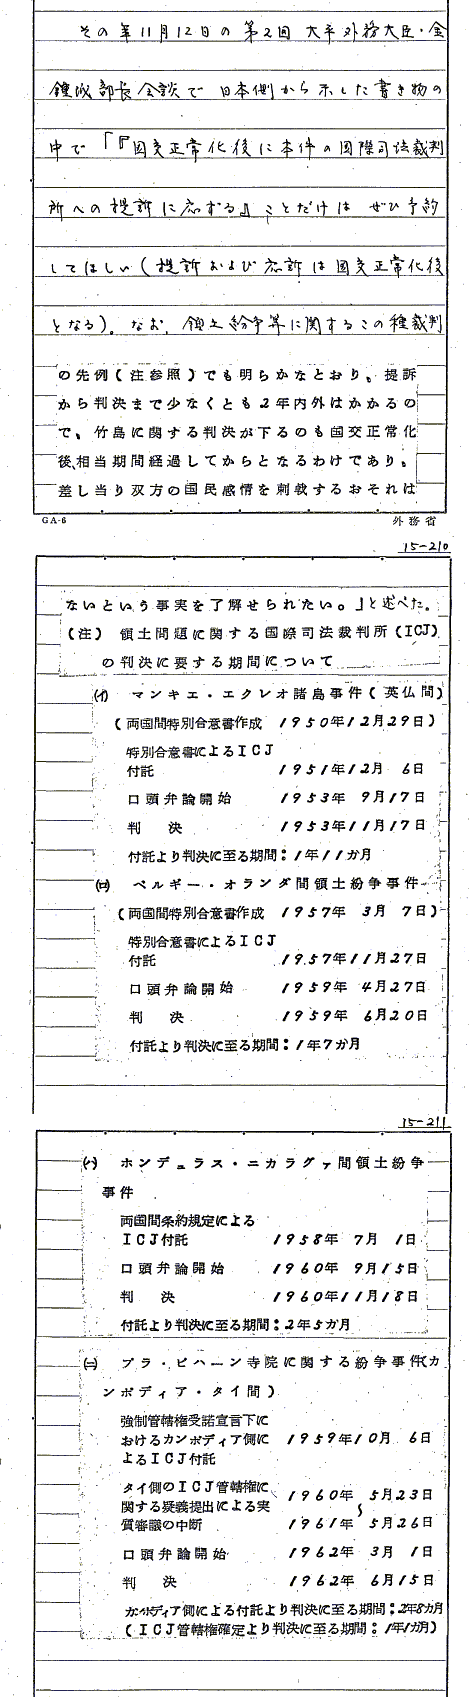 その年11月12日の第2回大平外務大臣・金
鍾泌部長会談で日本側から示した書き物の
中で「『国交正常化後に本件の国際司法裁判
所への提訴に応ずる』ことだけはぜひ予約
してほしい(提訴および応訴は国交正常化後
となる)。なお、領土紛争等に関するこの種裁判
の先例(注参照)でも明らかなとおり、提訴
から判決まで少なくとも2年内外はかかるの
で、竹島に関する判決が下るのも国交正常化
後、相当期間経過してからとなるわけであり、
差し当り双方の国民感情を刺戟するおそれは
GA-6 外務省
15-210
ないという事実を了解せられたい。」と述べた。
(注) 領土問題に関する国際司法裁判所(ICJ)
の判決に要する期間について
(イ) マンキエ・エクレオ諸島事件(英仏間)
(両国間特別合意書作成 1950年12月29日)
特別合意書によるICJ
付託 1951年12月 6日
口頭弁論開始 1953年 9月17日
判 決 1953年11月17日
付託より判決に至る期間:1年11カ月
(ロ) ベルギー・オランダ間領土紛争事件
(両国間特別合意書作成 1957年 3月 7日)
特別合意書によるICJ
付託 1957年11月27日
口頭弁論開始 1959年 4月27日
判 決 1959年 6月20日
付託より判決に至る期間:1年7カ月
15-211
(ハ) ホンデュラス・ニカラグァ間領土紛争
事件
両国間条約規定による
ICJ付託 1958年 7月 1日
口頭弁論開始 1960年 9月15日
判 決 1960年11月18日
付託より判決に至る期間:2年5カ月
(ニ) プラ・ビハーン寺院に関する紛争事件(カ
ンボディア・タイ間)
強制管轄権受諾宣言下に
おけるカンボディア側に 1959年10月 6日
よるICJ付託
タイ側のICJ管轄権に 1960年 5月23日
関する疑義提出による実 〜
質審議の中断 1961年 5月26日
口頭弁論開始 1962年 3月 1日
判 決 1962年 6月15日
カンボディア側による付託より判決に至る期間:2年8カ月
(ICJ管轄権確定より判決に至る期間:1年1カ月)